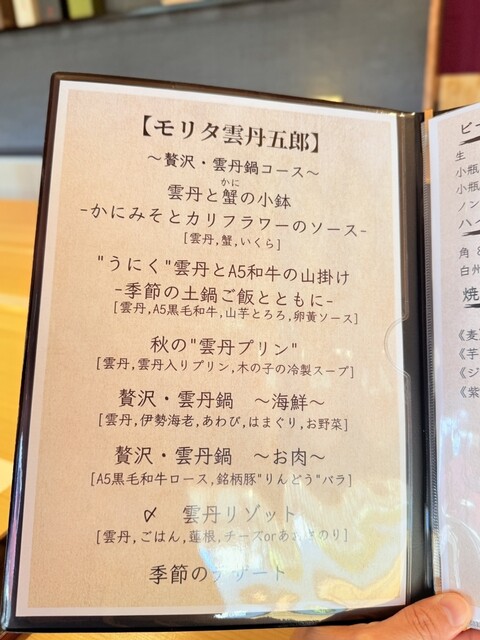 【モリタ雲丹五郎】
〜贅沢・雲丹鍋コース〜
かに
雲丹と蟹の小鉢
-かにみそとカリフラワーのソース-
[雲丹,蟹,いくら]
"うにく"雲丹とA5和牛の山掛け
-季節の土鍋ご飯とともに-
[雲丹,A5黒毛和牛,山芋とろろ,卵黄ソース]
秋の"雲丹プリン"
[雲丹,雲丹入りプリン,木の子の冷製スープ]
贅沢・雲丹鍋 〜海鮮〜
[雲丹,伊勢海老,あわび,はまぐり,お野菜]
贅沢・雲丹鍋 〜お肉〜
[A5黒毛和牛ロース,銘柄豚"りんどう"バラ]
〆 雲丹リゾット
[雲丹,ごはん,蓮根,チーズorあおさのり]
季節のデザート
ビー
生
小瓶
小瓶
ノン
ハイ
角 &
白州
焼
《麦》
《芋
《ジ
《紫